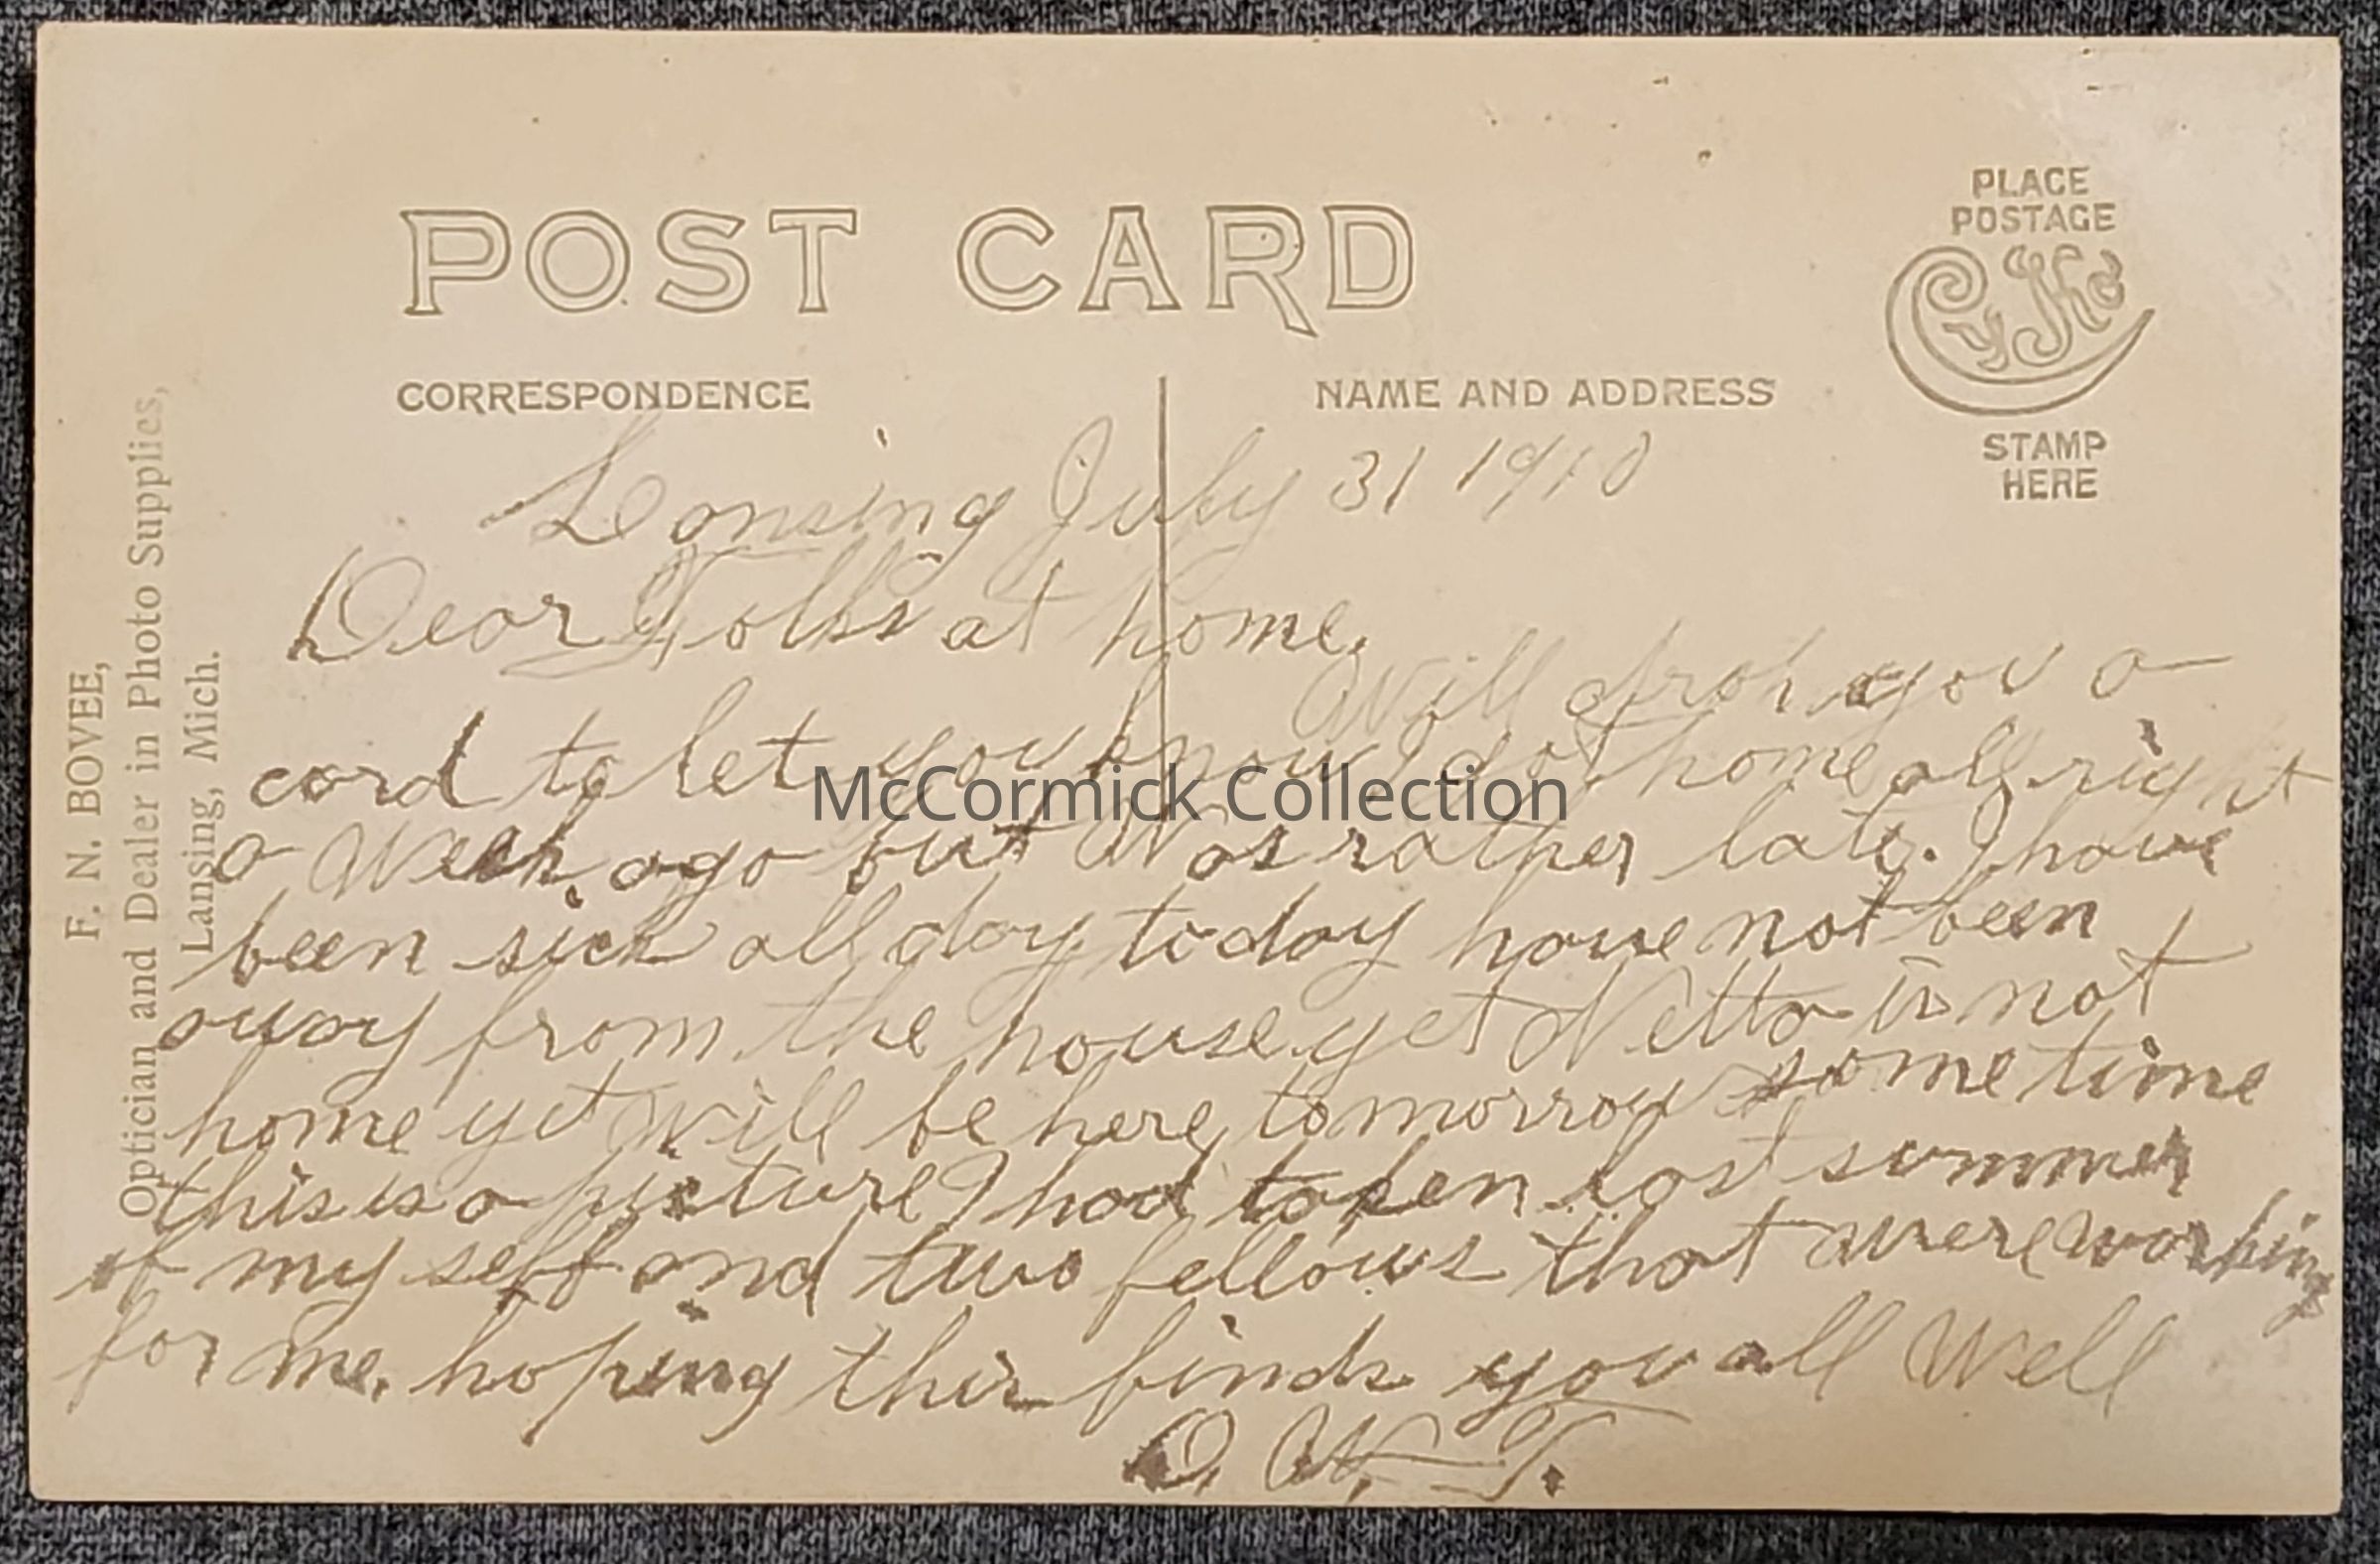 POST CARD
PLACE
POSTAGE
Cyko
STAMP
HERE
CORRESPONDENCE
NAME AND ADDRESS
F. N. BOVEE,
Optician and Dealer in Photo Supplies,
Lansing, Mich.
Lansing July 31 1910
Dear Folks at home.
Will drop you a
card to let you know I got home all right
a Week ago but Was rather late. I have
been sick all day today have not been
away from the house yet Netta is not
home yet will be here tomorrow some time
this is a picture I had taken last summer
of my self and two fellows that were working
for me. hoping this finds you all Well
O. W. T.
McCormick Collection